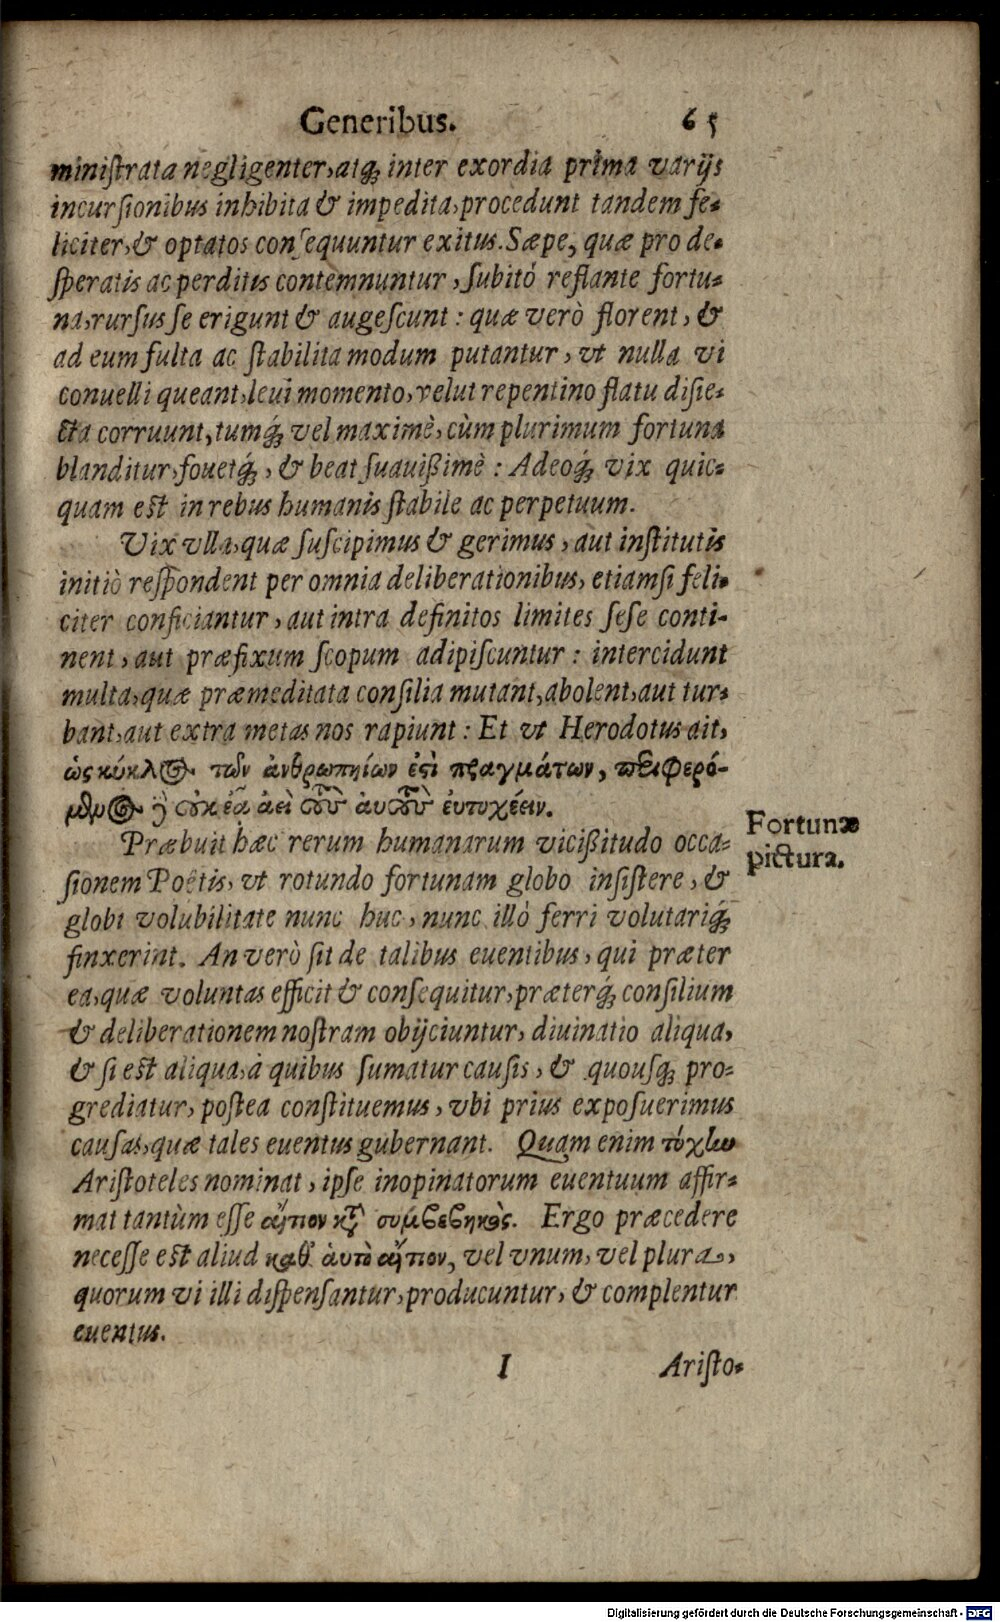 Generibus. 65
miniſtrata negligenter, atq́; inter exordia prima varijs
incurſionibus inhibita & impedita, procedunt tandem fe-
liciter, & optatos conſequuntur exitus. Sæpe, quæ pro de-
ſperatis ac perditis contemnuntur, ſubitò reflante fortu-
na, rurſus ſe erigunt & augeſcunt: quæ verò florent, &
ad eum fulta ac ſtabilita modum putantur, vt nulla vi
conuelli queant, leui momento, velut repentino flatu diſie-
cta corruunt, tumq́; vel maximè, cùm plurimum fortuna
blanditur, fouetq́;, & beat ſuauißimè: Adeoq́; vix quic-
quam eſt in rebus humanis ſtabile ac perpetuum.
Vix vlla, quæ ſuſcipimus & gerimus, aut inſtitutis
initiò reſpondent per omnia deliberationibus, etiamſi feli-
citer conficiantur, aut intra definitos limites ſeſe conti-
nent, aut præfixum ſcopum adipiſcuntur: intercidunt
multa, quæ præmeditata conſilia mutant, abolent, aut tur-
bant, aut extra metas nos rapiunt: Et vt Herodotus ait,
ὡς κύκλος τῶν ἀνθρωπηίων ἐςὶ πραγμάτων, περιφερό-
μενος ἢ οὐκ ἐᾶ ἀεὶ τοὺς αὐτοὺς εὐτυχέειν.
Præbuit hæc rerum humanarum vicißitudo occa-
ſionem Poëtis, vt rotundo fortunam globo inſiſtere, &
globi volubilitate nunc huc, nunc illò ferri volutariq́;
finxerint. An verò ſit de talibus euentibus, qui præter
ea, quæ voluntas efficit & conſequitur, præterq́; conſilium
& deliberationem noſtram obijciuntur, diuinatio aliqua,
& ſi eſt aliqua, à quibus ſumatur cauſis, & quouſq; pro-
grediatur, poſtea conſtituemus, vbi prius expoſuerimus
cauſas, quæ tales euentus gubernant. Quam enim τύχην
Ariſtoteles nominat, ipſe inopinatorum euentuum affir-
mat tantùm eſſe αἴτιον κτ̃ συμβεβηκὸς. Ergo præcedere
neceſſe eſt aliud καθ' ἁυτὸ αἴτιον, vel vnum, vel plura,
quorum vi illi diſpenſantur, producuntur, & complentur
euentus.
I Ariſto-
Fortunæ
pictura.
Digitalisierung gefördert durch die Deutsche Forschungsgemeinschaft - DFG